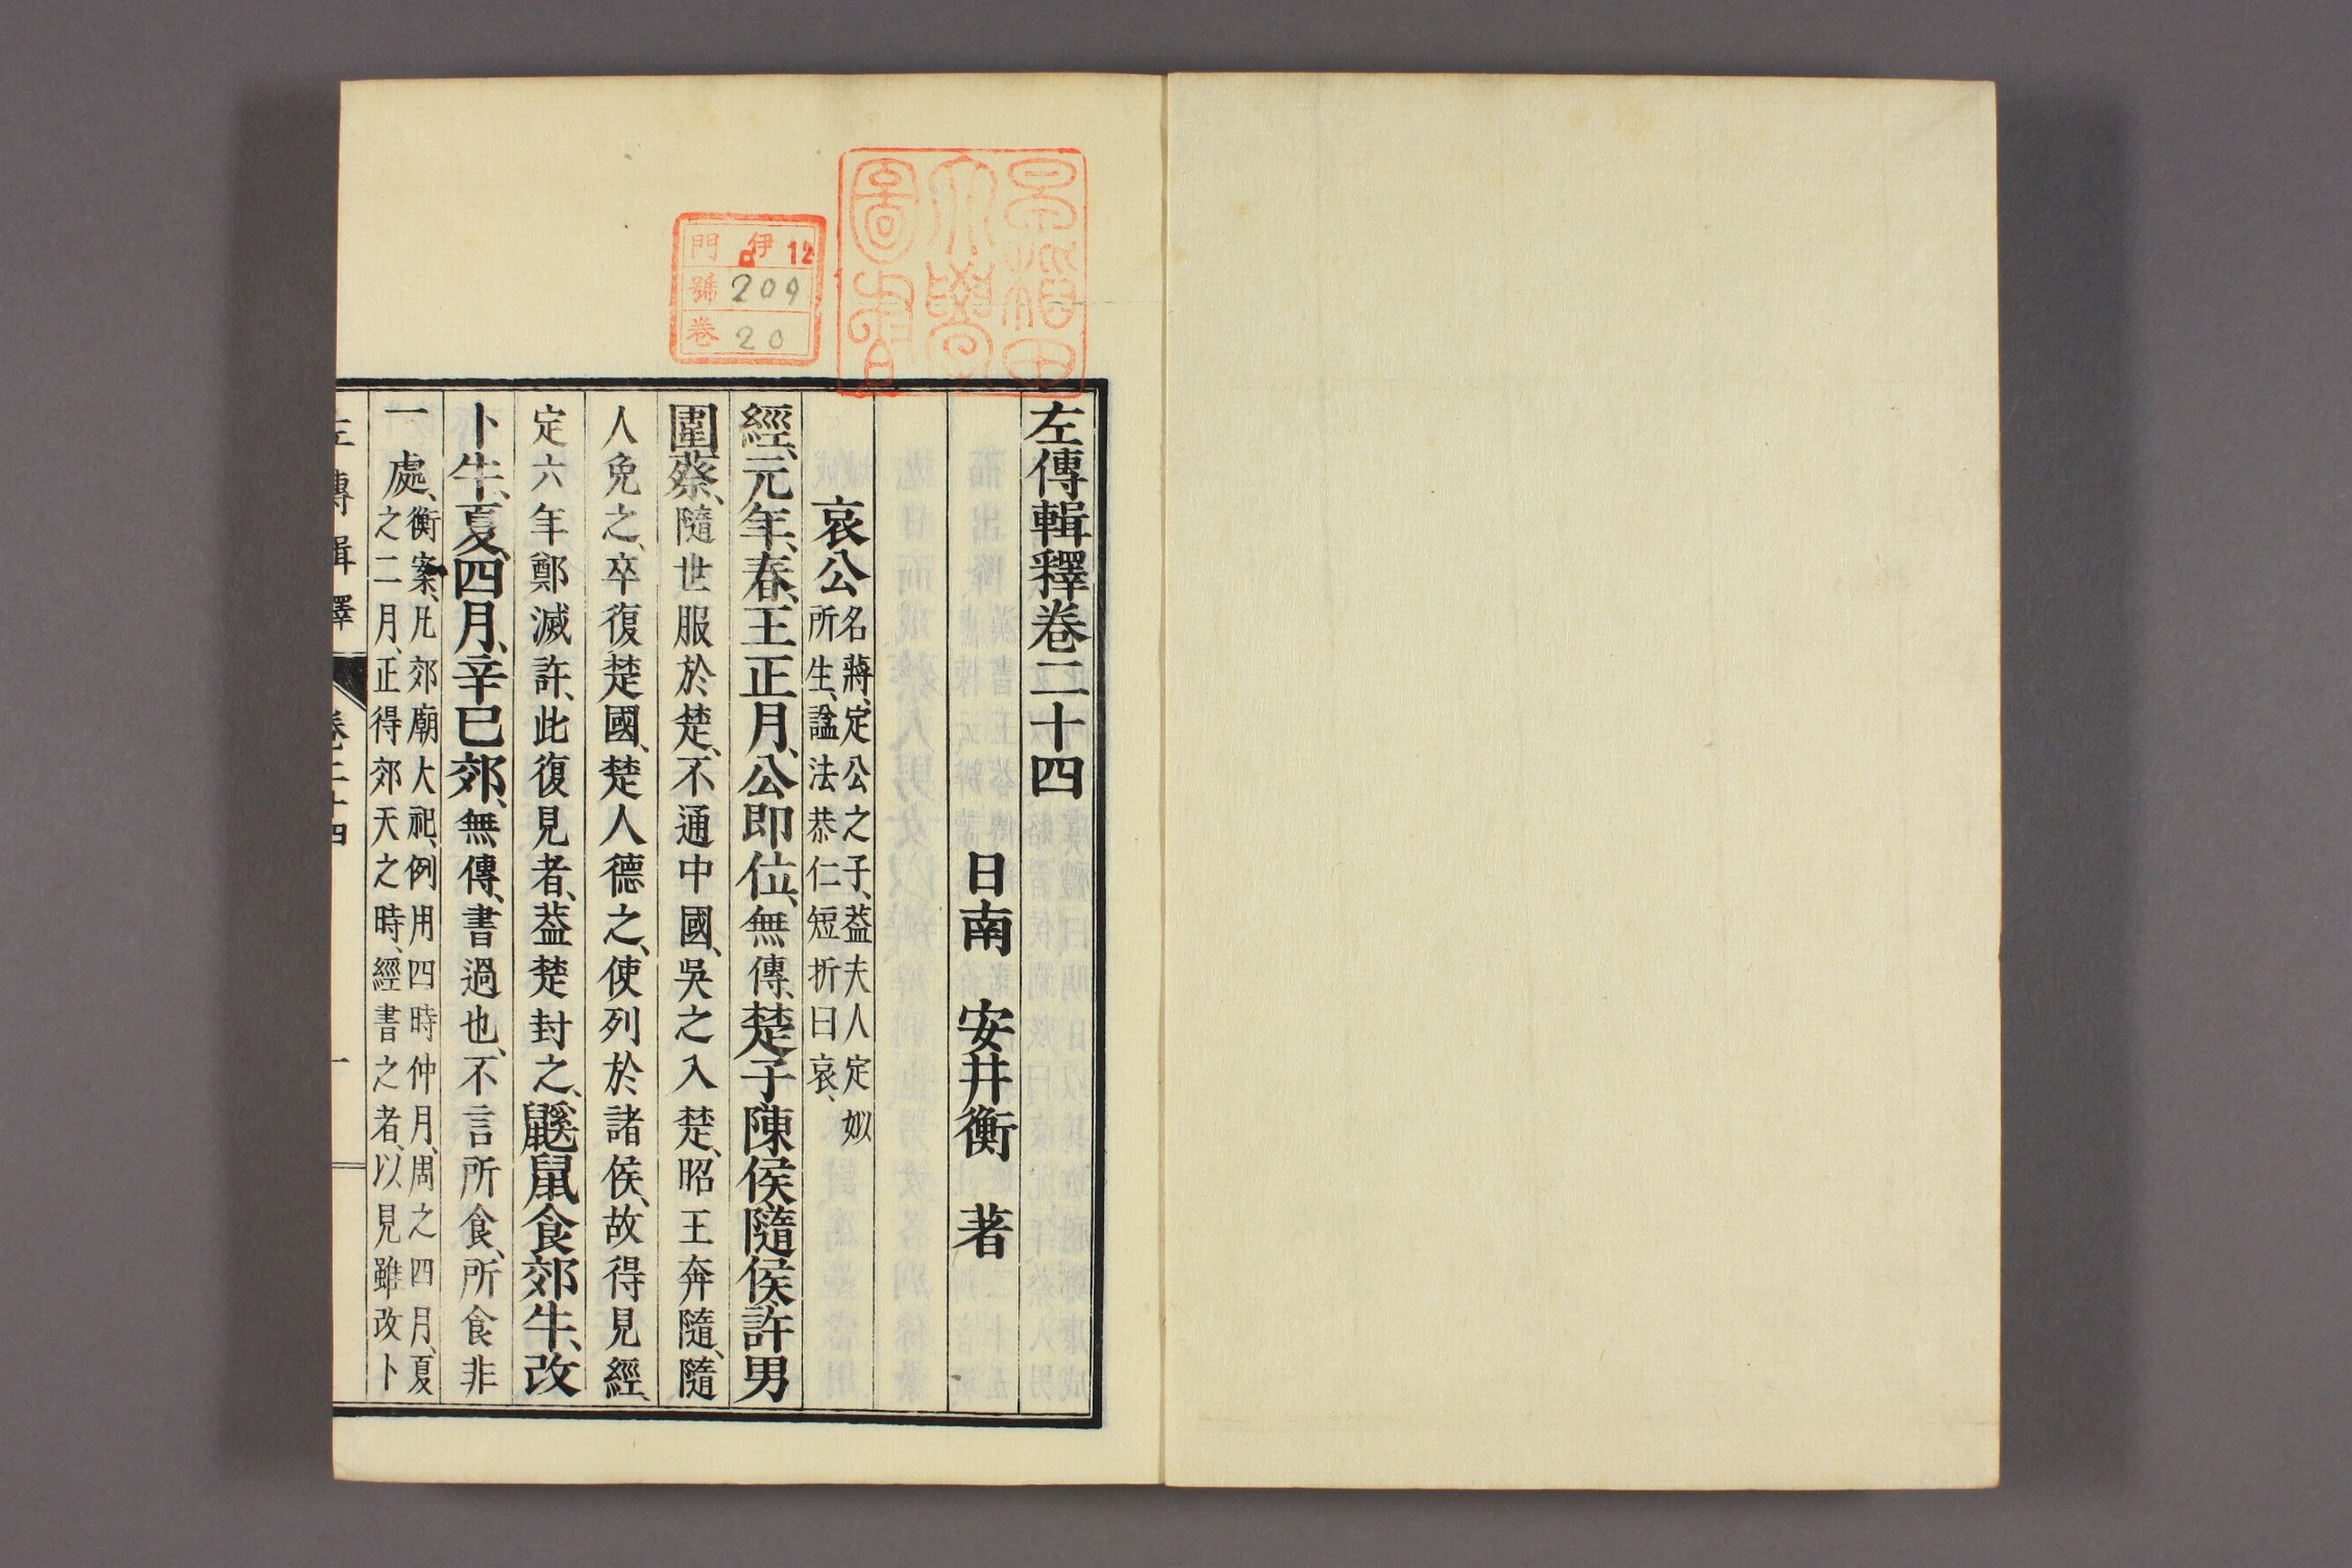 左傳輯釋卷二十四
日南 安井衡 著
哀公
名蔣、定公之子、葢夫人定姒
所生、諡法恭仁短折曰哀、
經、元年、春、王正月、公即位、無傳、楚子陳侯隨侯許男
圍蔡、隨世服於楚、不通中國、吳之入楚、昭王奔隨、隨
人免之、卒復楚國、楚人德之、使列於諸侯、故得見經、
定六年鄭滅許、此復見者、葢楚封之、鼷鼠食郊牛、改
卜牛、夏、四月、辛巳郊、無傳、書過也、不言所食、所食非
一處、
衡案、凡郊廟大祀、例用四時仲月、周之四月、夏
之二月、正得郊天之時、經書之者、以見雖改卜
左傳輯釋 卷二十四 一
早稻田
大學
圖書
門 伊 12
號 209
卷 20